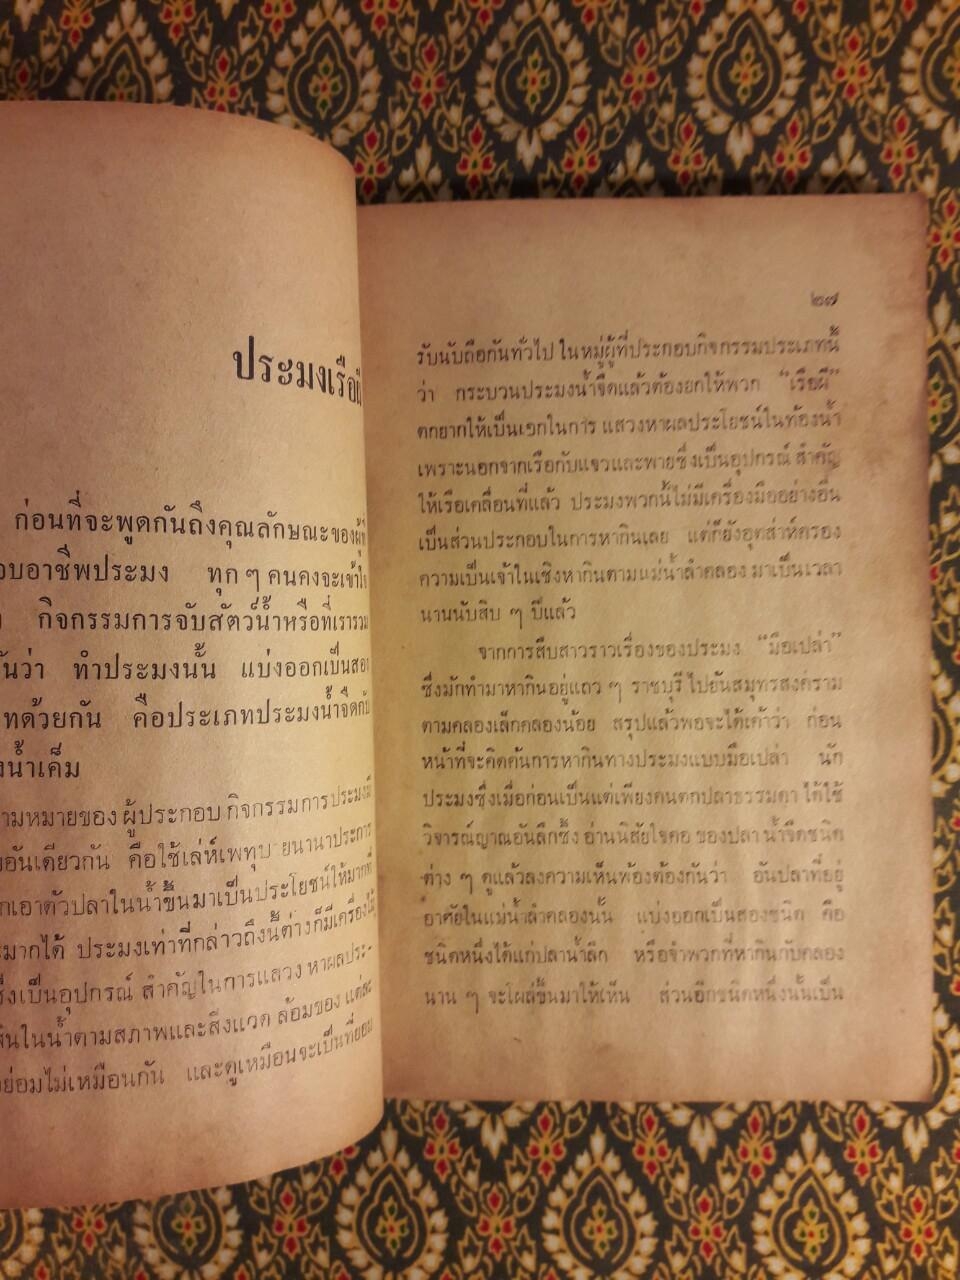 ประมงเรือ
ก่อนที่จะพูดกันถึงคุณลักษณะของ
อบอาชีพประมง ทุก ๆ คนคงจะเข้าใจ
กิจกรรมการจับสัตว์น้ำหรือที่เรารวม
กันว่า ทำประมงนั้น แบ่งออกเป็นสอง
ทด้วยกัน คือประเภทประมงน้ำจืดกับ
งน้ำเค็ม
ามหมายของ ผู้ประกอบ กิจกรรมการประมงมี
อันเดียวกัน คือใช้เล่ห์เพทุบ ยนานาประการ
กเอาตัวปลาในน้ำขึ้นมาเป็นประโยชน์ให้มากที่
ะมากได้ ประมงเท่าที่กล่าวถึงนี้ต่างก็มีเครื่อง
ซึ่งเป็นอุปกรณ์ สำคัญในการแสวง หาผลประ-
สินในน้ำตามสภาพและสิ่งแวด ล้อมของ แต่ละ
ย่อมไม่เหมือนกัน และดูเหมือนจะเป็นที่ยอม
๒๗
รับนับถือกันทั่วไป ในหมู่ผู้ที่ประกอบกิจกรรมประเภทนี้
ว่า กระบวนประมงน้ำจืดแล้วต้องยกให้พวก “เรือผี”
ตกยากให้เป็นเอกในการ แสวงหาผลประโยชน์ในท้องน้ำ
เพราะนอกจากเรือกับแจวและพายซึ่งเป็นอุปกรณ์ สำคัญ
ให้เรือเคลื่อนที่แล้ว ประมงพวกนี้ไม่มีเครื่องมืออย่างอื่น
เป็นส่วนประกอบในการหากินเลย แต่ก็ยังอุตส่าห์ครอง
ความเป็นเจ้าในเชิงหากินตามแม่น้ำลำคลอง มาเป็นเวลา
นานนับสิบ ๆ ปีแล้ว
จากการสืบสาวราวเรื่องของประมง “มือเปล่า”
ซึ่งมักทำมาหากินอยู่แถว ๆ ราชบุรี ไปยันสมุทรสงคราม
ตามคลองเล็กคลองน้อย สรุปแล้วพอจะได้เค้าว่า ก่อน
หน้าที่จะคิดค้นการหากินทางประมงแบบมือเปล่า นัก
ประมงซึ่งเมื่อก่อนเป็นแต่เพียงคนตกปลาธรรมดา ได้ใช้
วิจารณ์ญาณอันลึกซึ้ง อ่านนิสัยใจคอ ของปลา น้ำจืดชนิด
ต่าง ๆ ดูแล้วลงความเห็นพ้องต้องกันว่า อันปลาที่อยู่
อาศัยในแม่น้ำลำคลองนั้น แบ่งออกเป็นสองชนิด คือ
ชนิดหนึ่งได้แก่ปลาน้ำลึก หรือจำพวกที่หากินกับคลอง
นาน ๆ จะโผล่ขึ้นมาให้เห็น ส่วนอีกชนิดหนึ่งนั้นเป็น